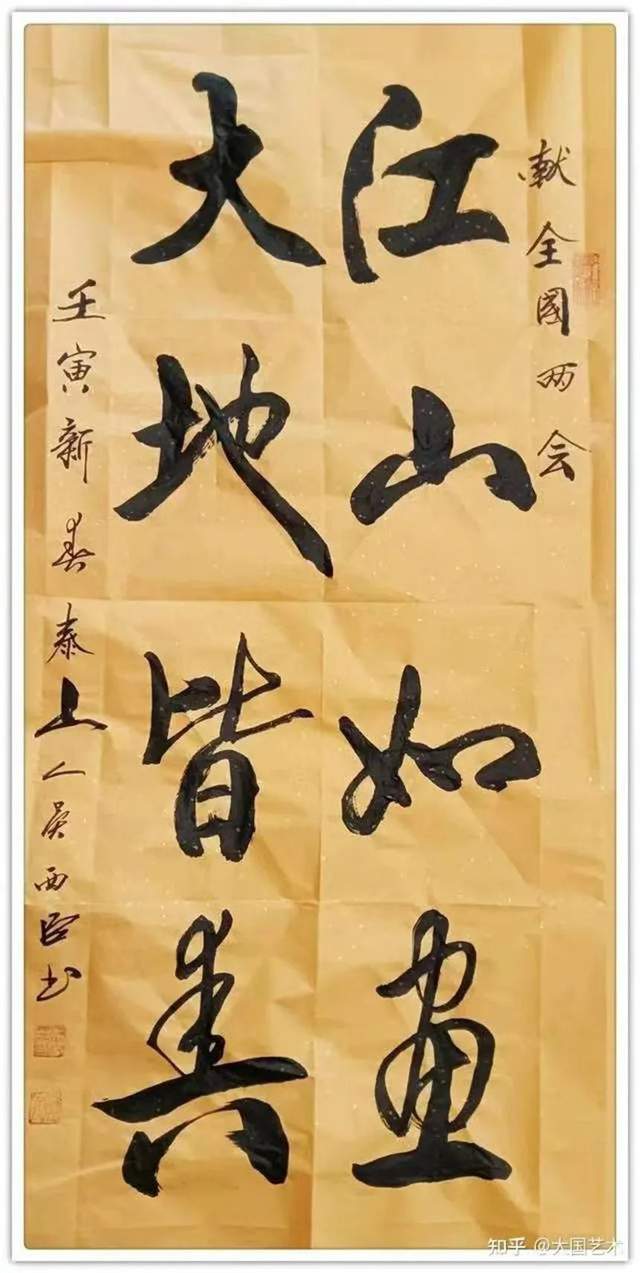 献全國两会
江山如画
大地皆春
壬寅新春泰山人吴西书
知乎 @大国艺术